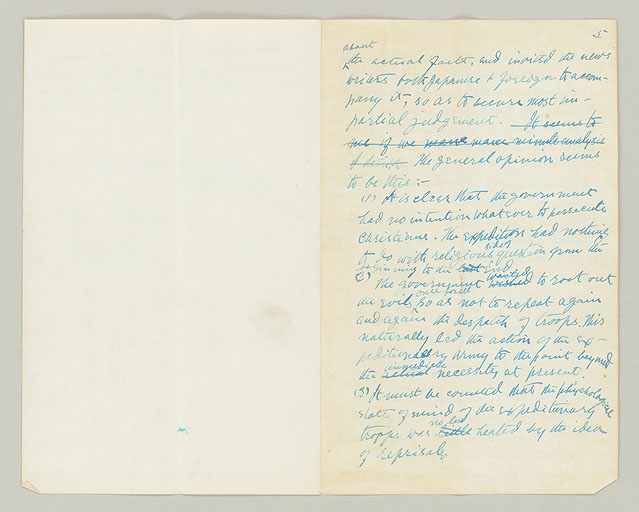 5
about
the actual facts, and invited the news
writers both Japanese & foreign to accom-
pany it, so as to secure most im-
partial judgement. It seems to
me if we make minute analysis
the general opinion seems
to be this :-
(1) It is clear that the government
had no intention whatever to persecute
Christians. The expedition had nothing
to do with religious question from the
side,
beginning to the last end.
(2) The government wanted wished to root out
the evils, once for all so as not to repeat again
and again the despatch of troops. This
naturally led the action of the ex-
peditionary army to the point beyond
the actual immediate necessity at present.
(3) It must be counted that the physchological
state of mind of the expeditionary
troops was no less little heated by the idea
of reprisal.